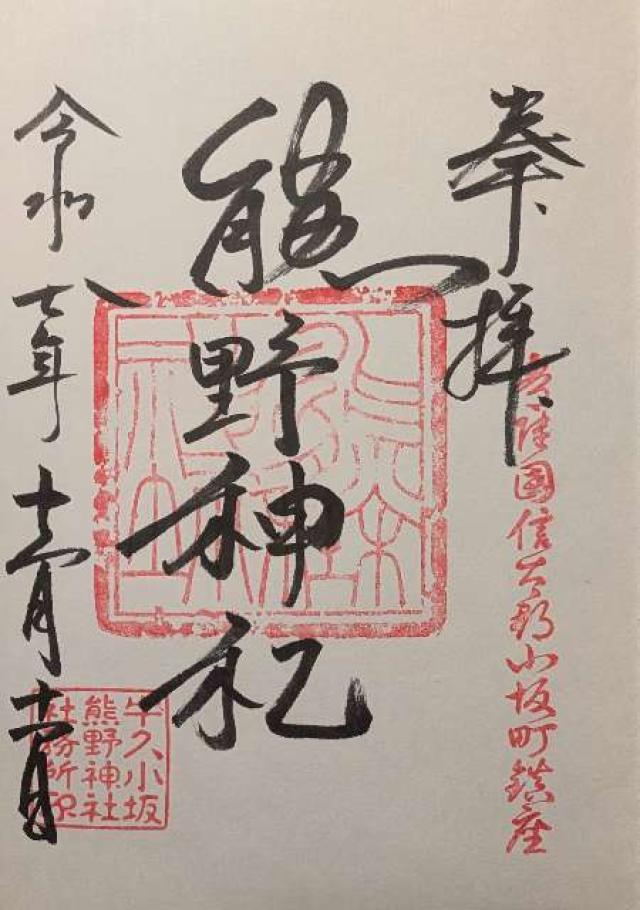 奉拝
常陸國信太郡小坂町鎮座
熊野神社
令和七年十二月
牛久小坂
熊野神社
社務所印